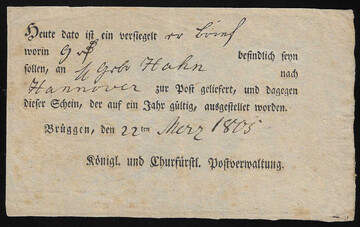 Heute dato ist ein versiegelt er brief
worin 9 befindlich seyn
sollen, an Gebr Hahn nach
Hannover zur Post geliefert, und dagegen
dieser Schein, der auf ein Jahr gültig, ausgestellet worden.
Brüggen, den 22ten Merz 1805
Königl. und Churfürstl. Postverwaltung.